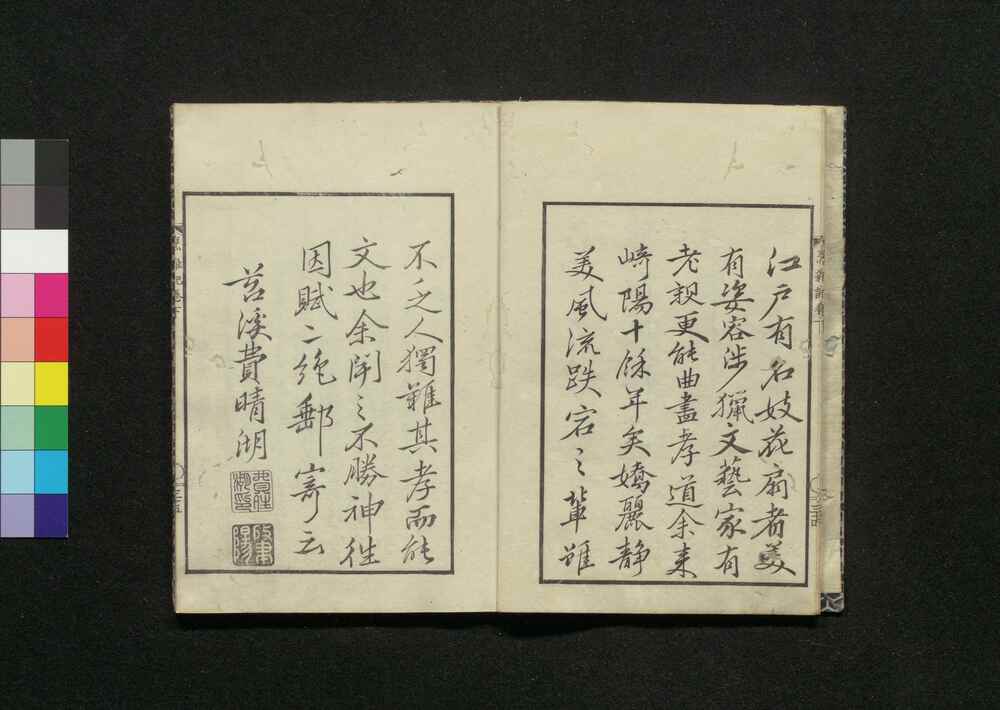 江戸有名妓花扇者美
有姿容渉獵文藝家有
老親更能曲盡孝道余来
崎陽十餘年矣嬌麗静
美風流跌宕之輩雖
不乏人獨難其孝而能
文也余聞之不勝神往
因賦二絶郵寄云
苕溪費晴湖